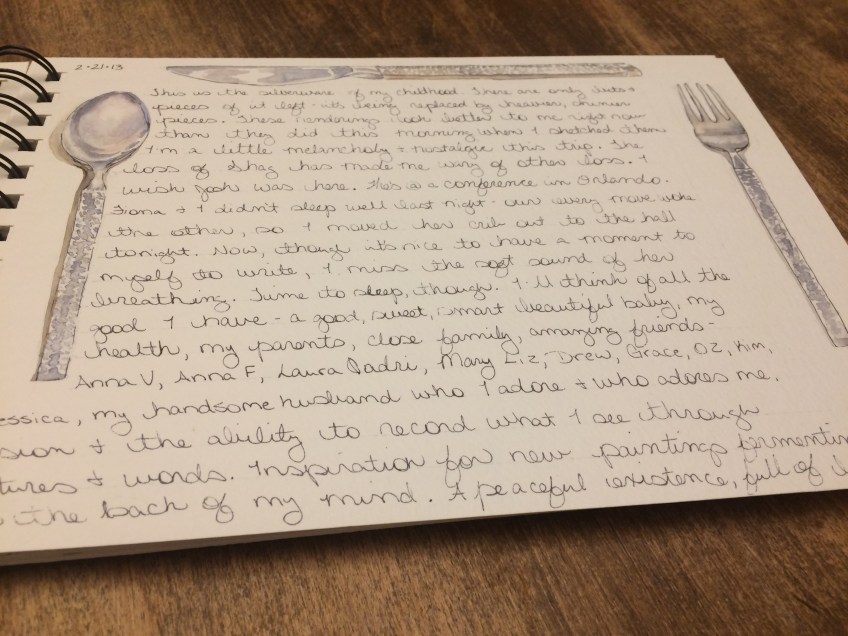 2·21·13
This is the silverware of my childhood. There are only lets +
pieces of it left - it's being replaced by heavier, shinier
pieces. These renderings look better to me right now
than they did this morning when I sketched them
I'm a little melancholy + nostalgic this trip. The
loss of Shag has made me wary of other loss. I
wish Josh was here. He's @ a conference in Orlando.
Fiona + I didn't sleep well last night - our every move woke
the other, so I moved her crib out to the hall
tonight. Now, though it's nice to have a moment to
myself to write, I miss the soft sound of her
breathing. Time to sleep, though. I'll think of all the
good I have - a good, sweet, smart beautiful baby, my
health, my parents, close family, amazing friends -
Anna V, Anna F, Laura Padri, Mary Liz, Drew, Grace, Oz, Kim,
essica, my handsome husband who I adore + who adores me,
sion + the ability to record what I see through
tures + words. Inspiration for new paintings fermentin
the back of my mind. A peaceful existence, full of